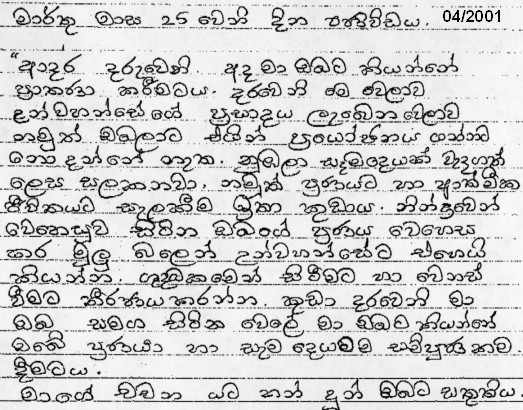 මාර්තු මාස 25 වෙනි දින පණිවිඩය. 04/2001
"ආදර දරුවෙනි. අද මා ඔබට කියන්නේ
ප්‍රාර්ථනා කිරීමටය. දරුවෙනි මේ වෙලාව
උන්වහන්සේගේ ප්‍රසාදය ලැබෙන වෙලාව
නමුත් ඔබලාට එයින් ප්‍රයෝජනය ගන්න
නොදන්නේ නැත. නුඹලා සෑමදෙයක් වැදගත්
ලෙස සලකනවා. නමුත් ප්‍රාණයට හා ආත්මික
ජීවිතයට සැලකීම ඉතා කුඩාය. නින්දෙන්
වෙහෙසුව සිටින ඔබගේ ප්‍රාණය වෙහෙස
කර මුලු බලෙන් උන්වහන්සේට එහෙයි
කියන්න. ගැඹුරෙන් සිටීමට හා වෙනස්
වීමට තීරණය කරන්න. කුඩා දරුවෙනි මා
ඔබ සමග සිටින වෙලේ මා ඔබට කියන්නේ
ඔබේ ප්‍රාණයා හා සෑම දෙයමම සම්පුර්ණකම
දීමටය.
මාගේ වචන යට කන් දුන් ඔබට සතුතිය.